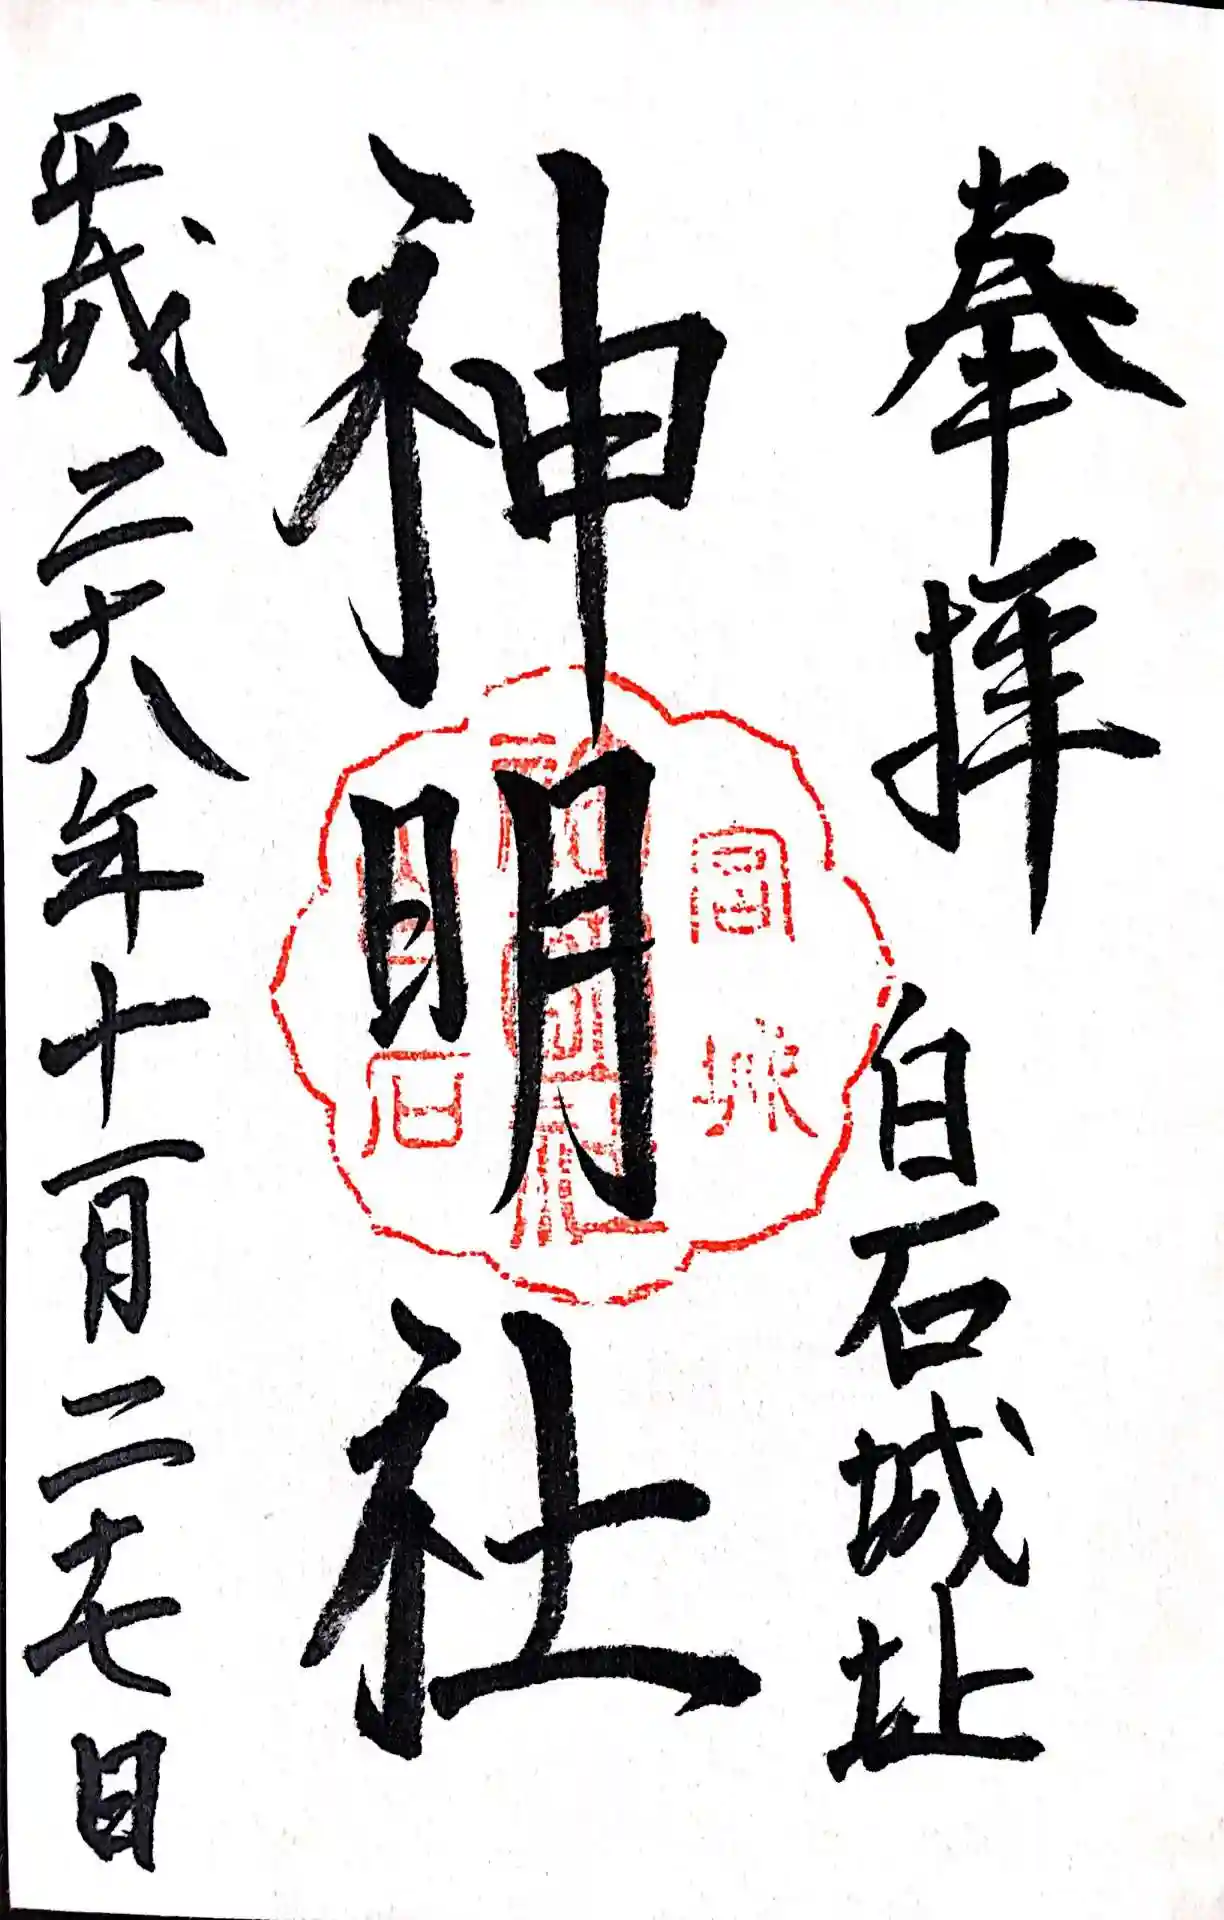 奉拝 白石城址
神明社
平成二十八年十一月二十七日
宮城
神明社
白石